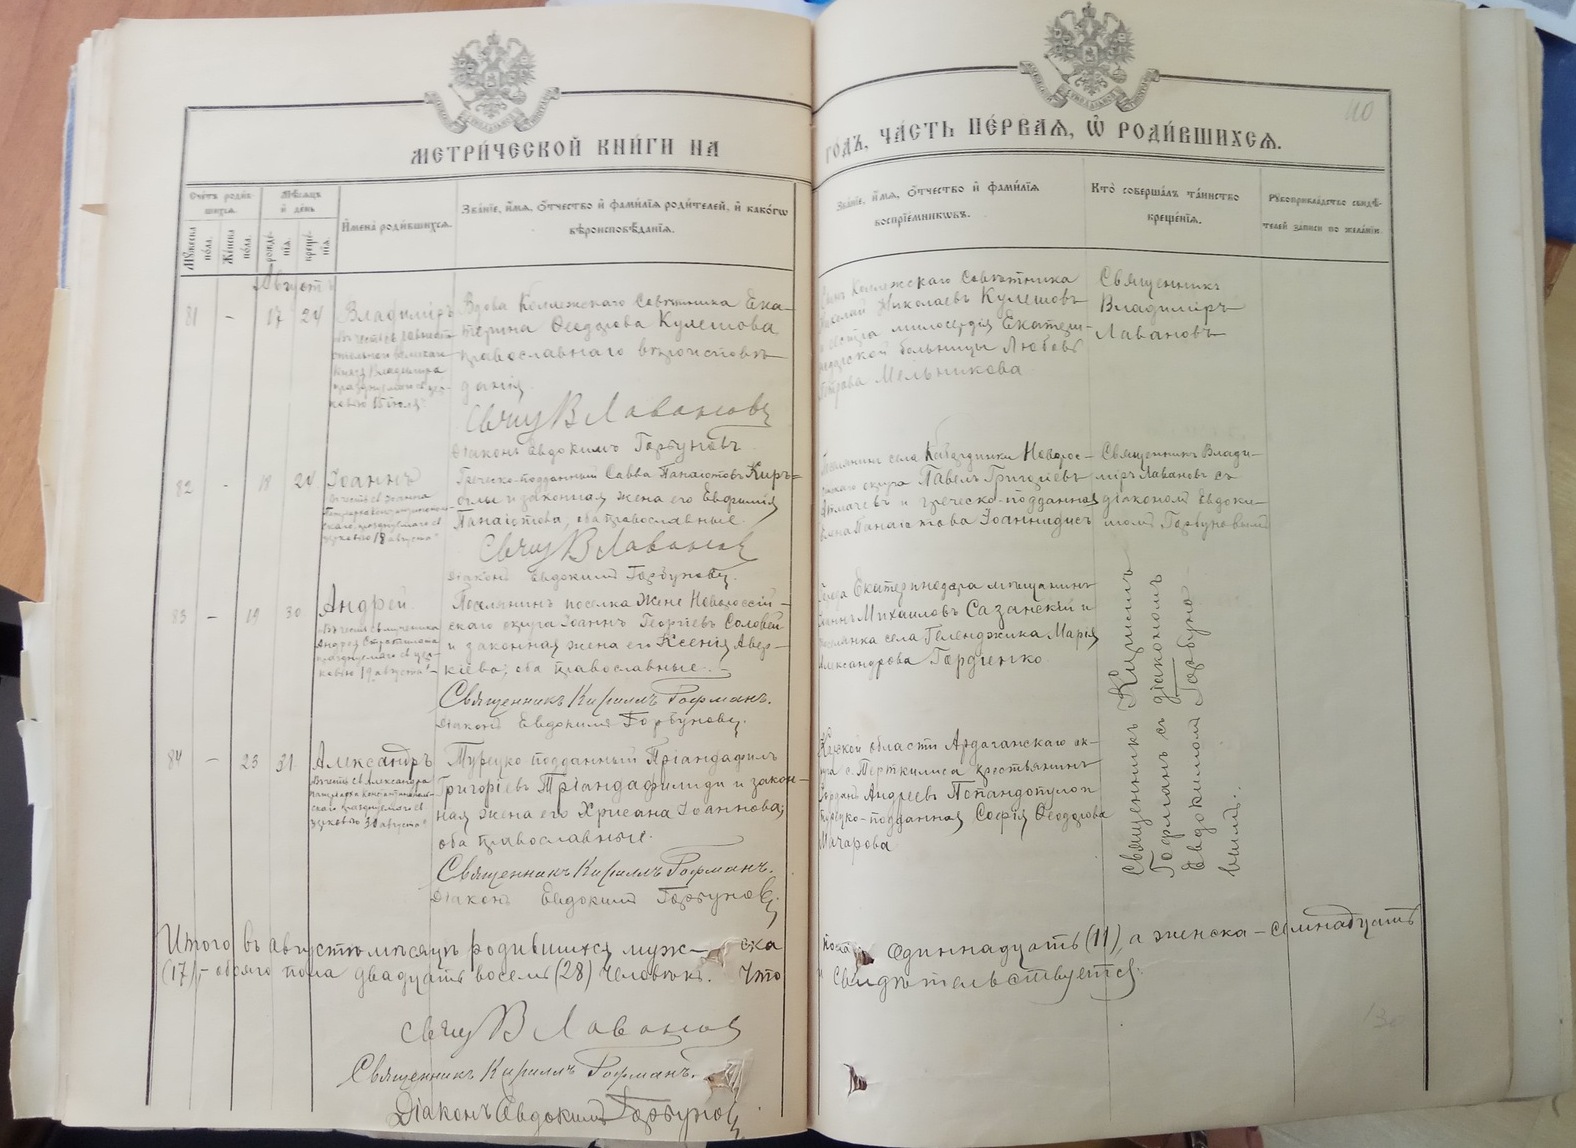 110
МЕТРИ́ЧЕСКОЙ КНИ́ГИ НА
ГО́ДЪ, ЧА́СТЬ ПЕ́РВАѦ, Ѿ РОДИ́ВШИХСѦ.
Сче́тъ роди́в-
шихсѧ.
Му́жеска по́ла.
Же́нска по́ла.
Мѣ́сѧцъ
и҆ де́нь
рожде́нїѧ.
креще́нїѧ.
И҆мена̀ роди́вшихсѧ.
Зва́нїе, и҆́мѧ, ѻ҆́тчество и҆ фами́лїѧ роди́телей, и҆ како́гѡ
вѣроисповѣ́данїѧ.
Зва́нїе, и҆́мѧ, ѻ҆́тчество и҆ фами́лїѧ
воспрїе́мникѡвъ.
Кто̀ соверша́лъ та́инство
креще́нїѧ.
Рꙋкоприкла́дство свидѣ́-
телей за́писи по жела́нїю.
Августъ
81 - 17 24
Владиміръ
въ честь св. равноапо
стольнаго великаго
князя Владиміра
празднуемаго св. цер-
ковію 15 іюля
Вдова Коллежскаго Совѣтника Ека-
терина Ѳеодорова Кулешова
православнаго вѣроисповѣ-
данія.
Свящ В Лавановъ
Діаконъ Евдокимъ Горбуновъ
Сынъ Коллежскаго Совѣтника
Николай Николаевъ Кулешовъ
и сестра милосердія Екатери-
нодарской больницы Любовь
Петрова Мельникова
Священникъ
Владиміръ
Лавановъ
82 - 18 24
Іоаннъ
въ честь св. Іоанна
Патріарха Константинополь-
скаго, празднуемаго св.
церковію 18 августа
Греческо-подданный Савва Панаіотовъ Киръ-
оглы и законная жена его Евфимія
Панаіотова, оба православные.
Свящ В Лавановъ
Діаконъ Евдокимъ Горбуновъ.
Поселянинъ села Кабардинки Новорос-
сійскаго округа Павелъ Григоріевъ
Атмачевъ и греческо-подданная
Елена Панаіотова Іоаннидисъ
Священникъ Влади-
міръ Лавановъ съ
діакономъ Евдоки-
момъ Горбуновымъ
83 - 19 30
Андрей
въ честь св. мученика
Андрея Стратилата
празднуемаго св. цер-
ковію 19 августа
Поселянинъ поселка Жене Новороссій-
скаго округа Іоаннъ Георгіевъ Соловей
и законная жена его Ксенія Авер-
кіева; оба православные.
Священникъ Кириллъ Гофманъ.
Діаконъ Евдокимъ Горбуновъ.
Города Екатеринодара мѣщанинъ
Іоаннъ Михаиловъ Сазанскій и
поселянка села Геленджика Марія
Александрова Гордіенко
Священникъ Кириллъ
Гофманъ съ діакономъ
Евдокимомъ Горбуно-
вымъ.
84 - 23 31
Александръ
въ честь св. Александра
патріарха Константинополь-
скаго празднуемаго св.
церковію 30 августа
Турецко подданный Тріандафилъ
Григоріевъ Тріандафилиди и закон-
ная жена его Хрисана Іоаннова;
оба православные.
Священникъ Кириллъ Гофманъ.
Діаконъ Евдокимъ Горбуновъ
Карской области Ардаганскаго ок-
руга с. Терткилиса крестьянинъ
Іорданъ Андреевъ Попандопуло и
турецко-подданная Софія Ѳеодорова
Мачарова
Итого въ августѣ мѣсяцѣ родившихся муж-ска пола одиннадцать (11), а женска - семнадцать
(17); обоего пола двадцать восемь (28) человѣкъ. Что и свидѣтельствуется.
Свящ В Лавановъ
Священникъ Кириллъ Гофманъ.
Діаконъ Евдокимъ Горбуновъ